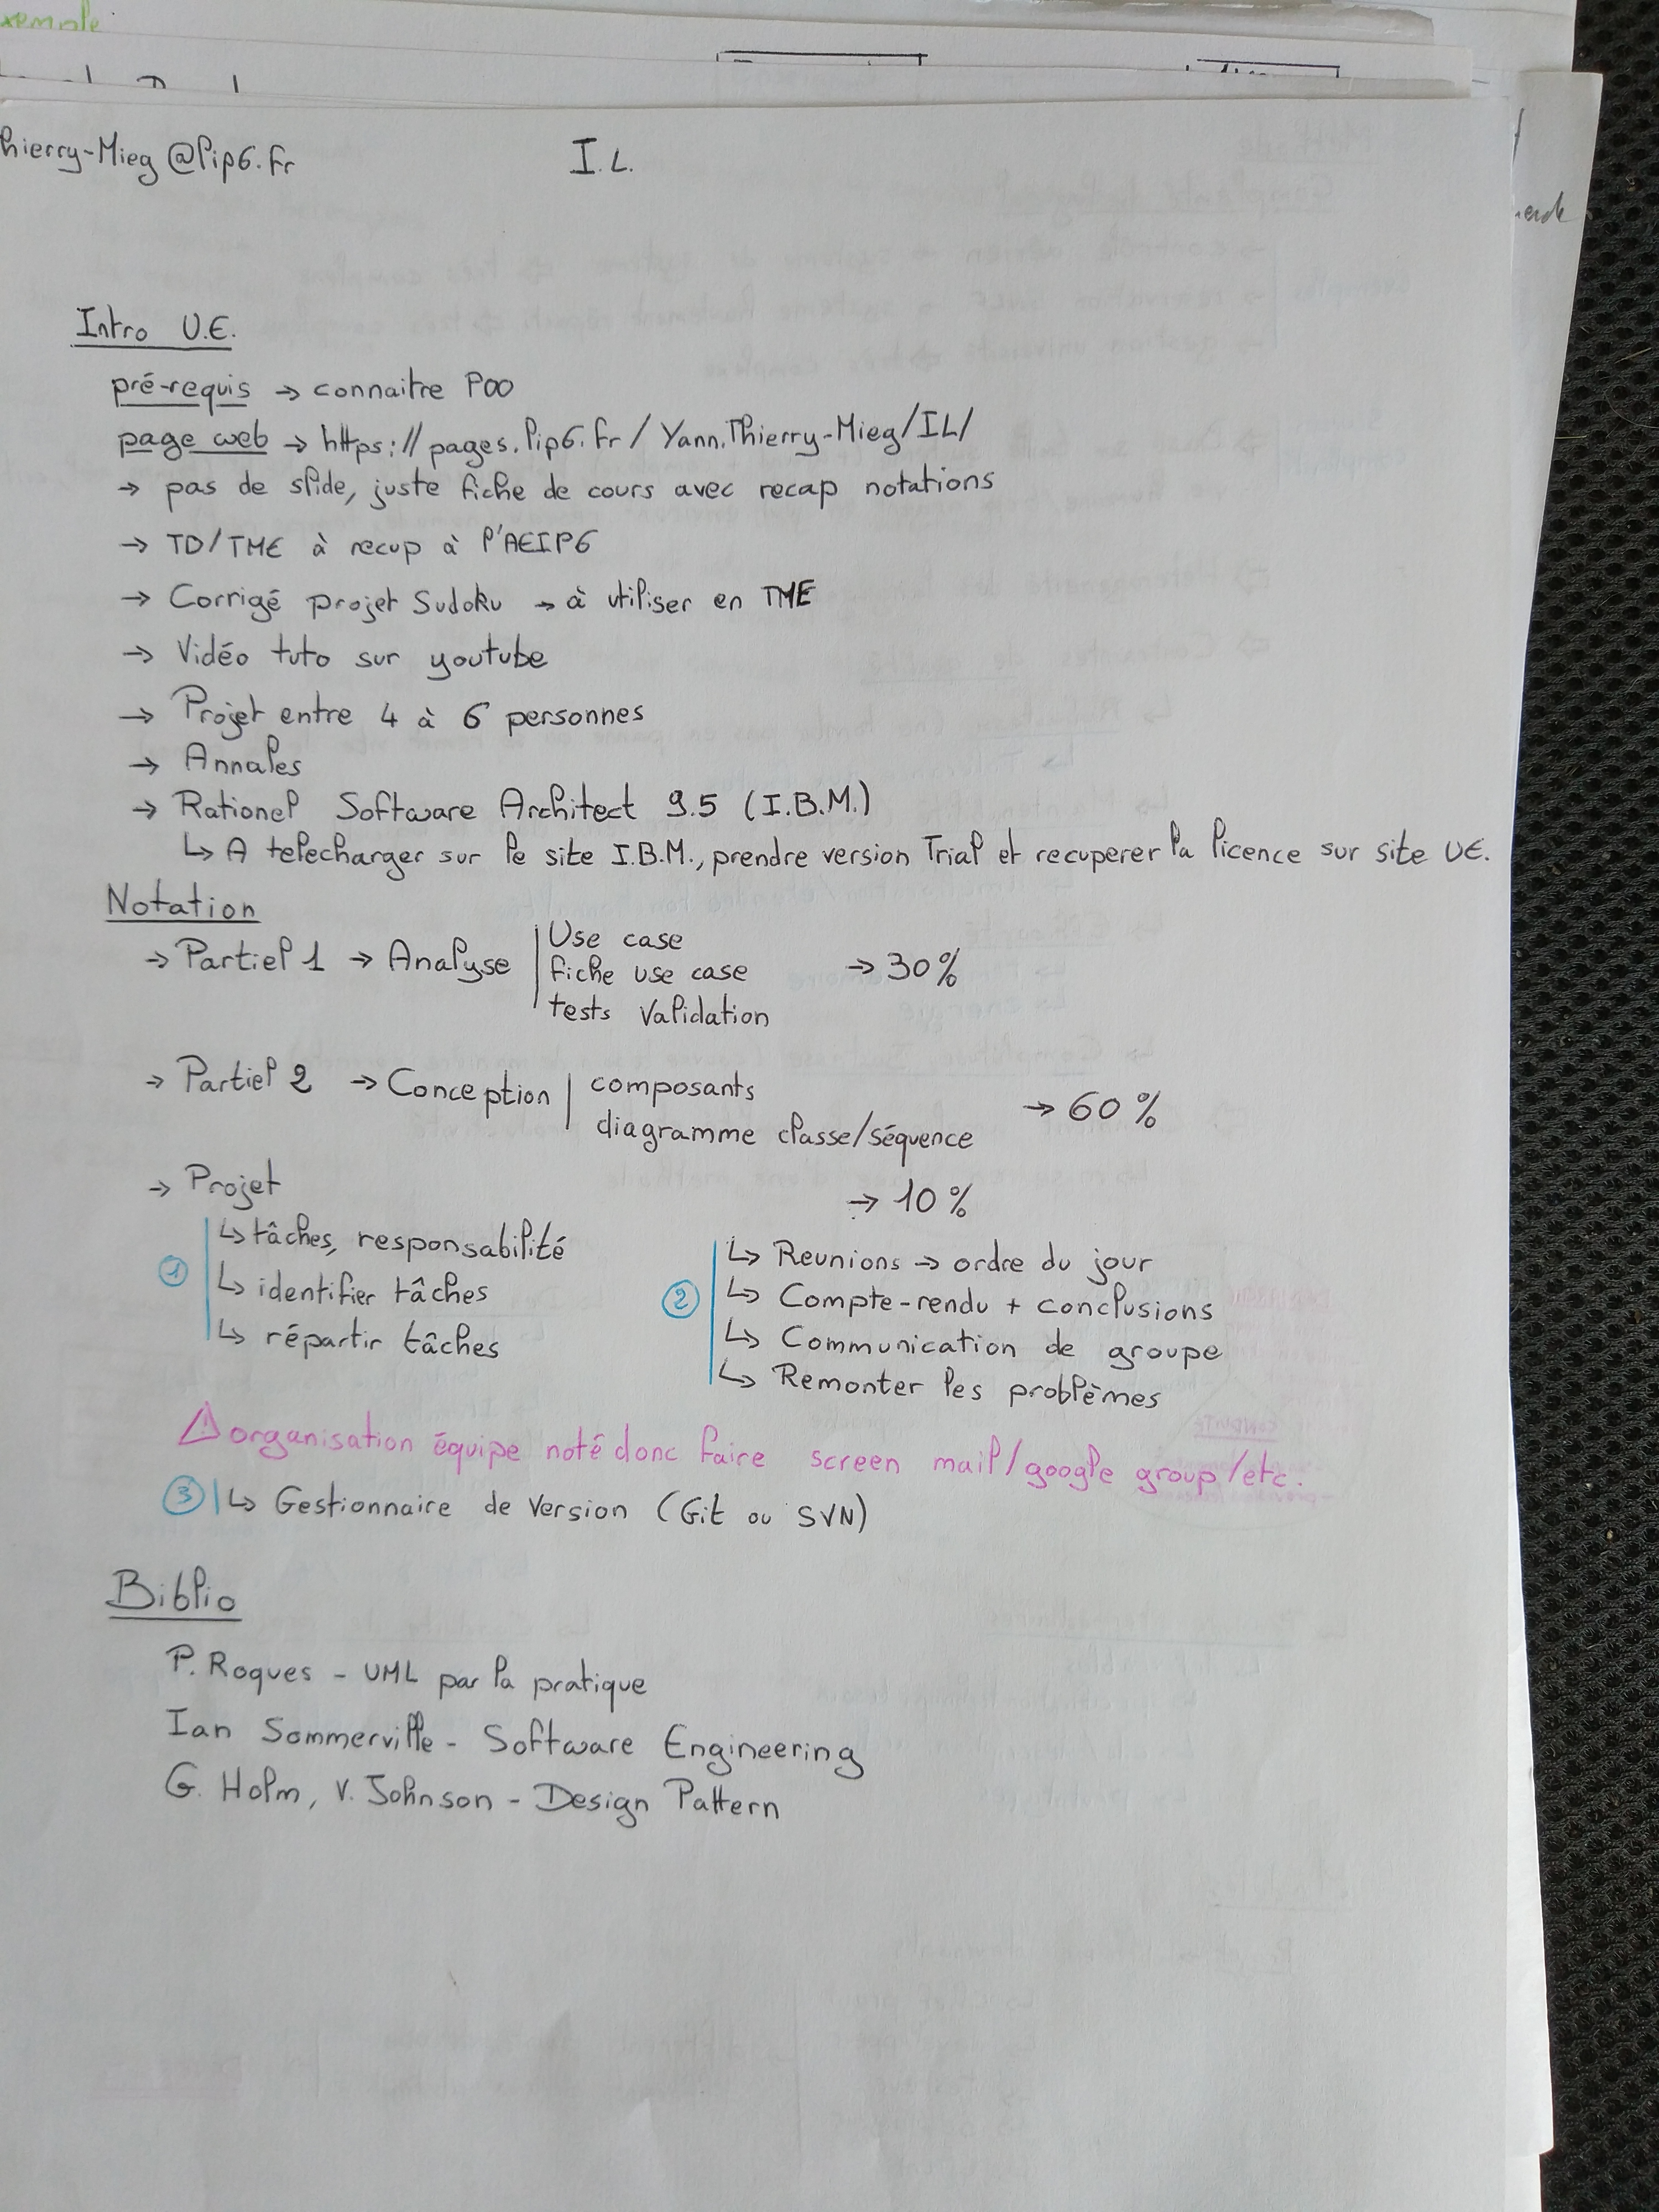 xemple
hierry-Mieg @lip6.fr I.L.
Intro U.E.
pré-requis → connaitre POO
page web → https://pages.lip6.fr/Yann.Thierry-Mieg/IL/
→ pas de slide, juste fiche de cours avec recap notations
→ TD/TME à recup à l'AEIP6
→ Corrigé projet Sudoku → à utiliser en TME
→ Vidéo tuto sur youtube
→ Projet entre 4 à 6 personnes
→ Annales
→ Rationel Software Architect 9.5 (I.B.M.)
↳ A telecharger sur le site I.B.M., prendre version Trial et recuperer la licence sur site UE.
Notation
→ Partiel 1 → Analyse | Use case
fiche use case → 30%
tests validation
→ Partiel 2 → Conception | composants → 60%
diagramme classe/séquence
→ Projet → 10%
① ↳ tâches, responsabilité
↳ identifier tâches
↳ répartir tâches
② ↳ Reunions → ordre du jour
↳ Compte-rendu + conclusions
↳ Communication de groupe
↳ Remonter les problèmes
⚠ organisation équipe noté donc faire screen mail/google group/etc.
③ | ↳ Gestionnaire de version (Git ou SVN)
Biblio
P. Roques - UML par la pratique
Ian Sommerville - Software Engineering
G. Holm, V. Johnson - Design Pattern